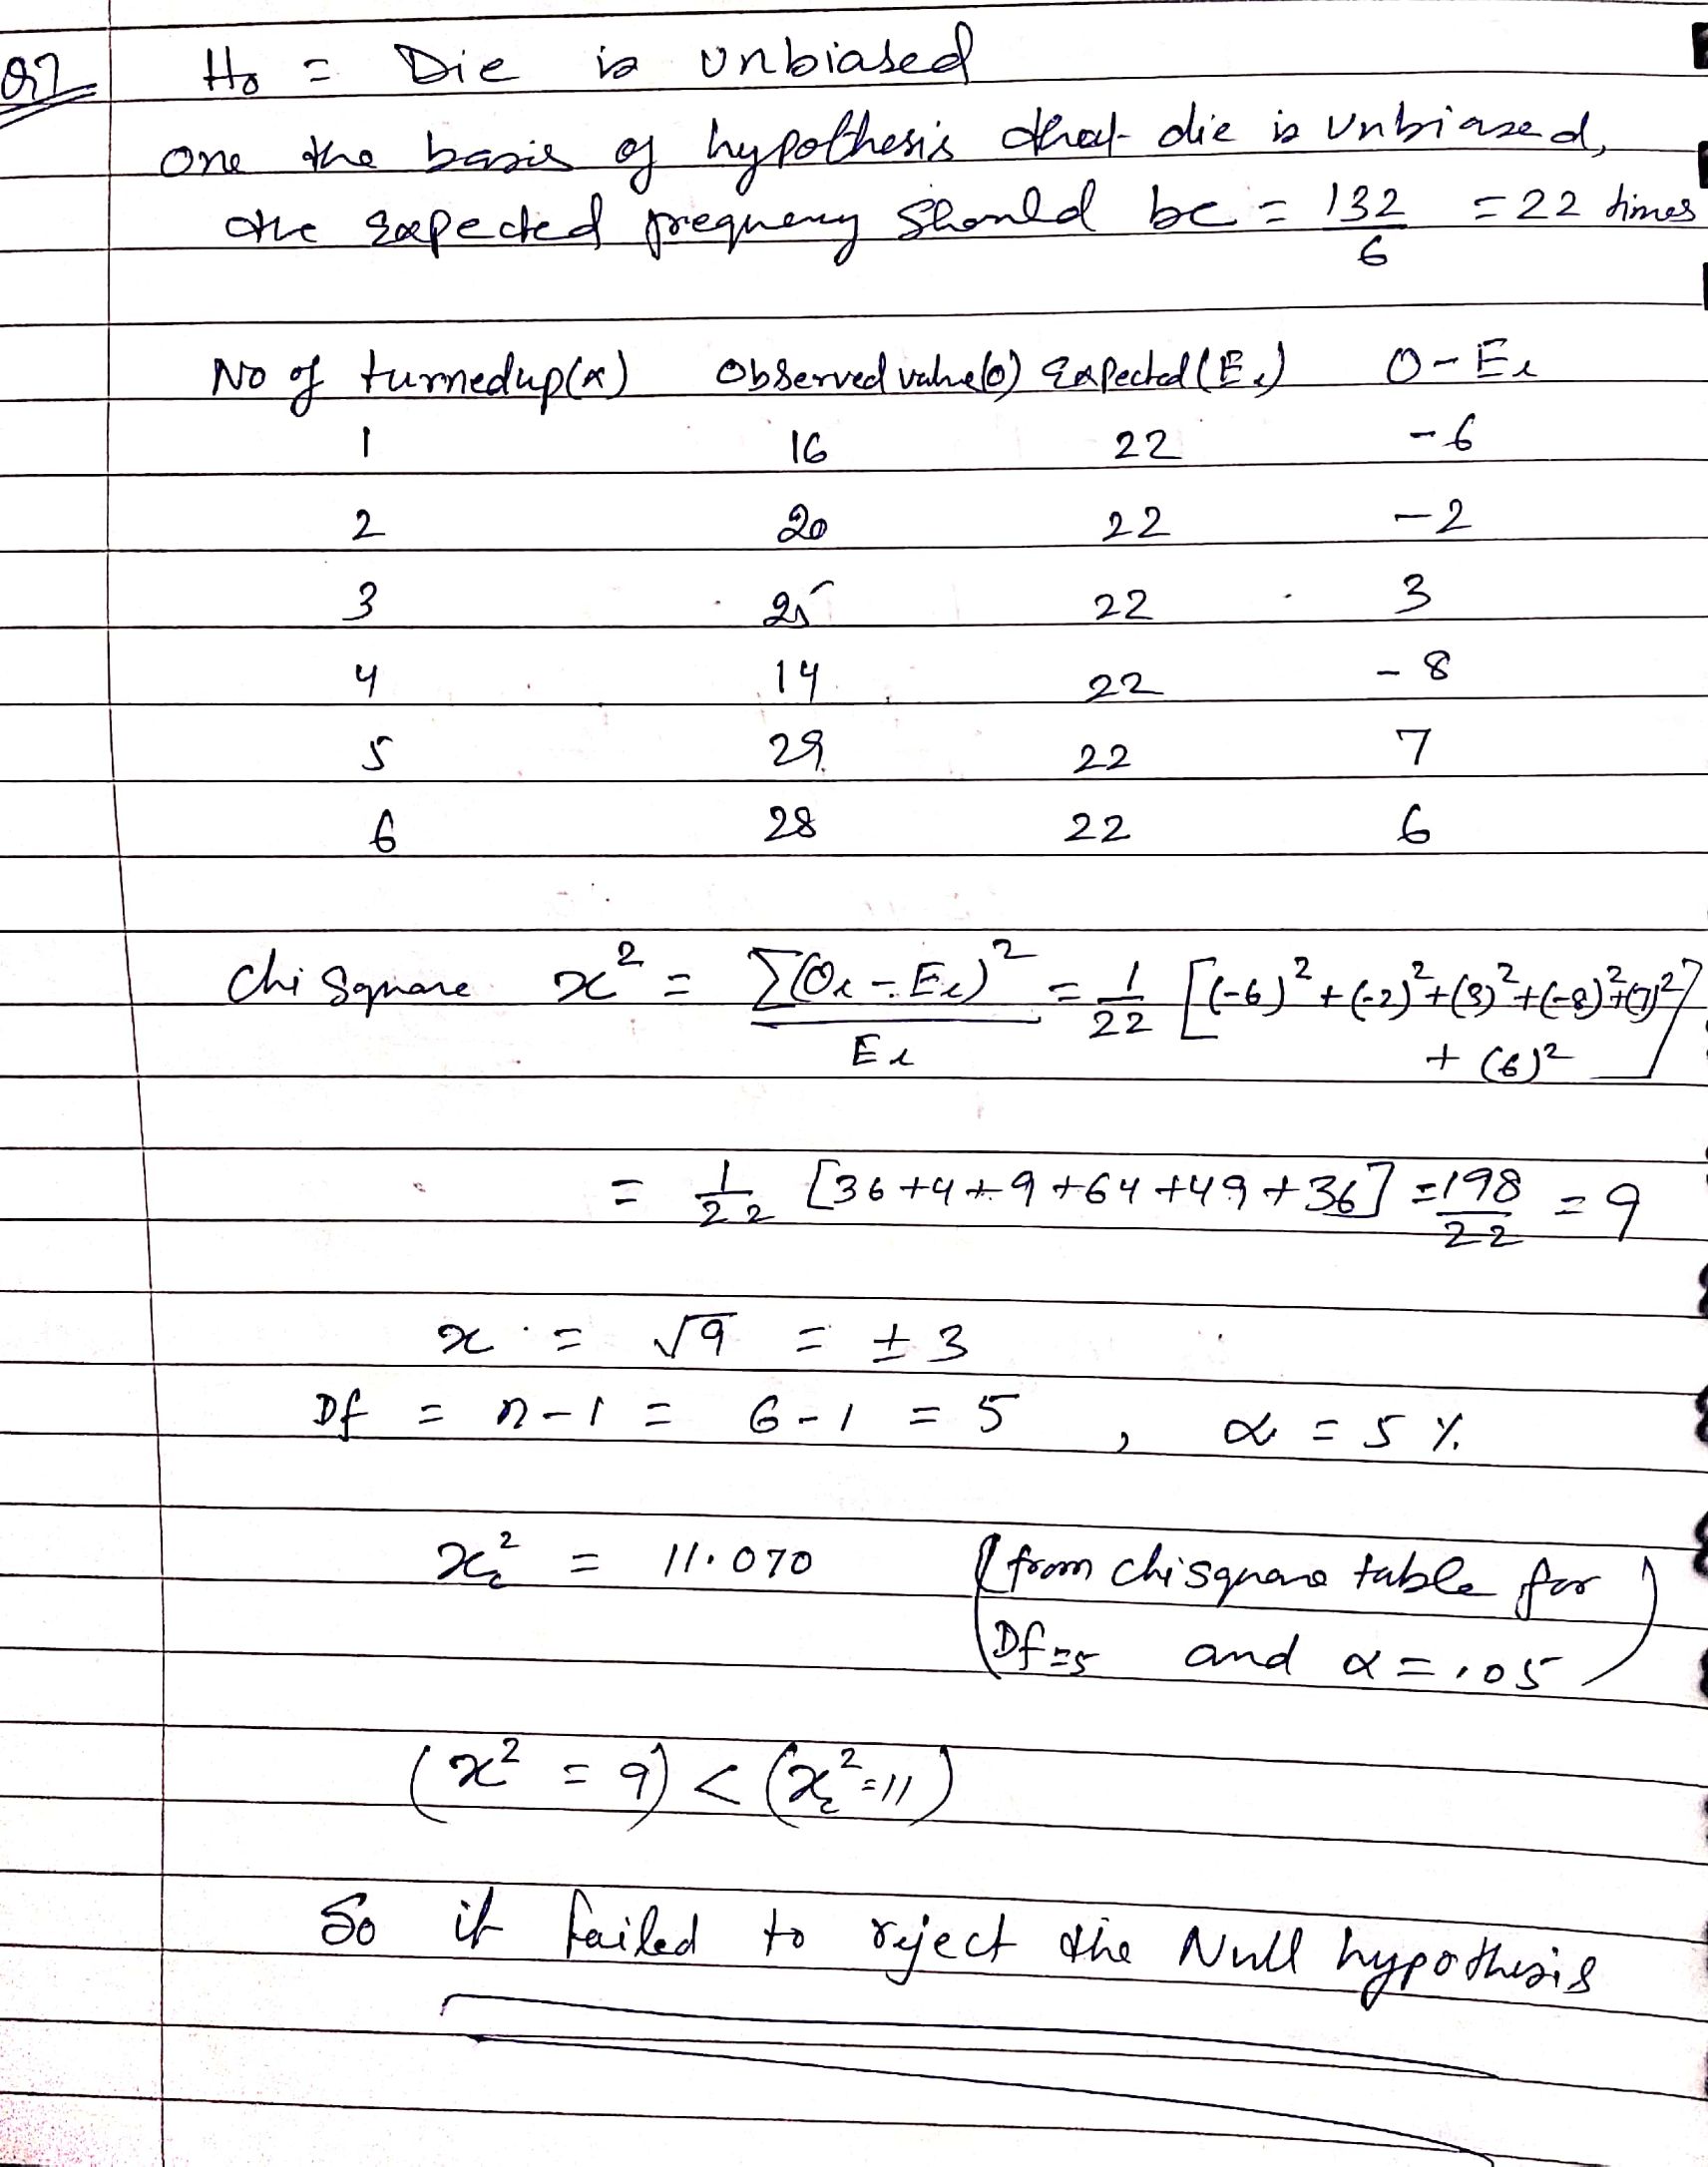 Q7 H₀ = Die is unbiased
One the basis of hypothesis that die is unbiased,
the expected frequency should be = 132/6 = 22 times
No of turnedup(x) Observed value(O) Expected (Ei) O-Ei
1 16 22 -6
2 20 22 -2
3 25 22 3
4 14 22 -8
5 29 22 7
6 28 22 6
Chi Square x² = Σ(Oi - Ei)²/Ei = 1/22 [(-6)²+(-2)²+(3)²+(-8)²+(7)²
+ (6)²]
= 1/22 [36+4+9+64+49+36] = 198/22 = 9
x = √9 = ±3
Df = n-1 = 6-1 = 5 , α = 5 %
x²c = 11.070 (from chisquare table for
Df=5 and α = .05)
(x² = 9) < (x²c=11)
So it failed to reject the Null hypothesis